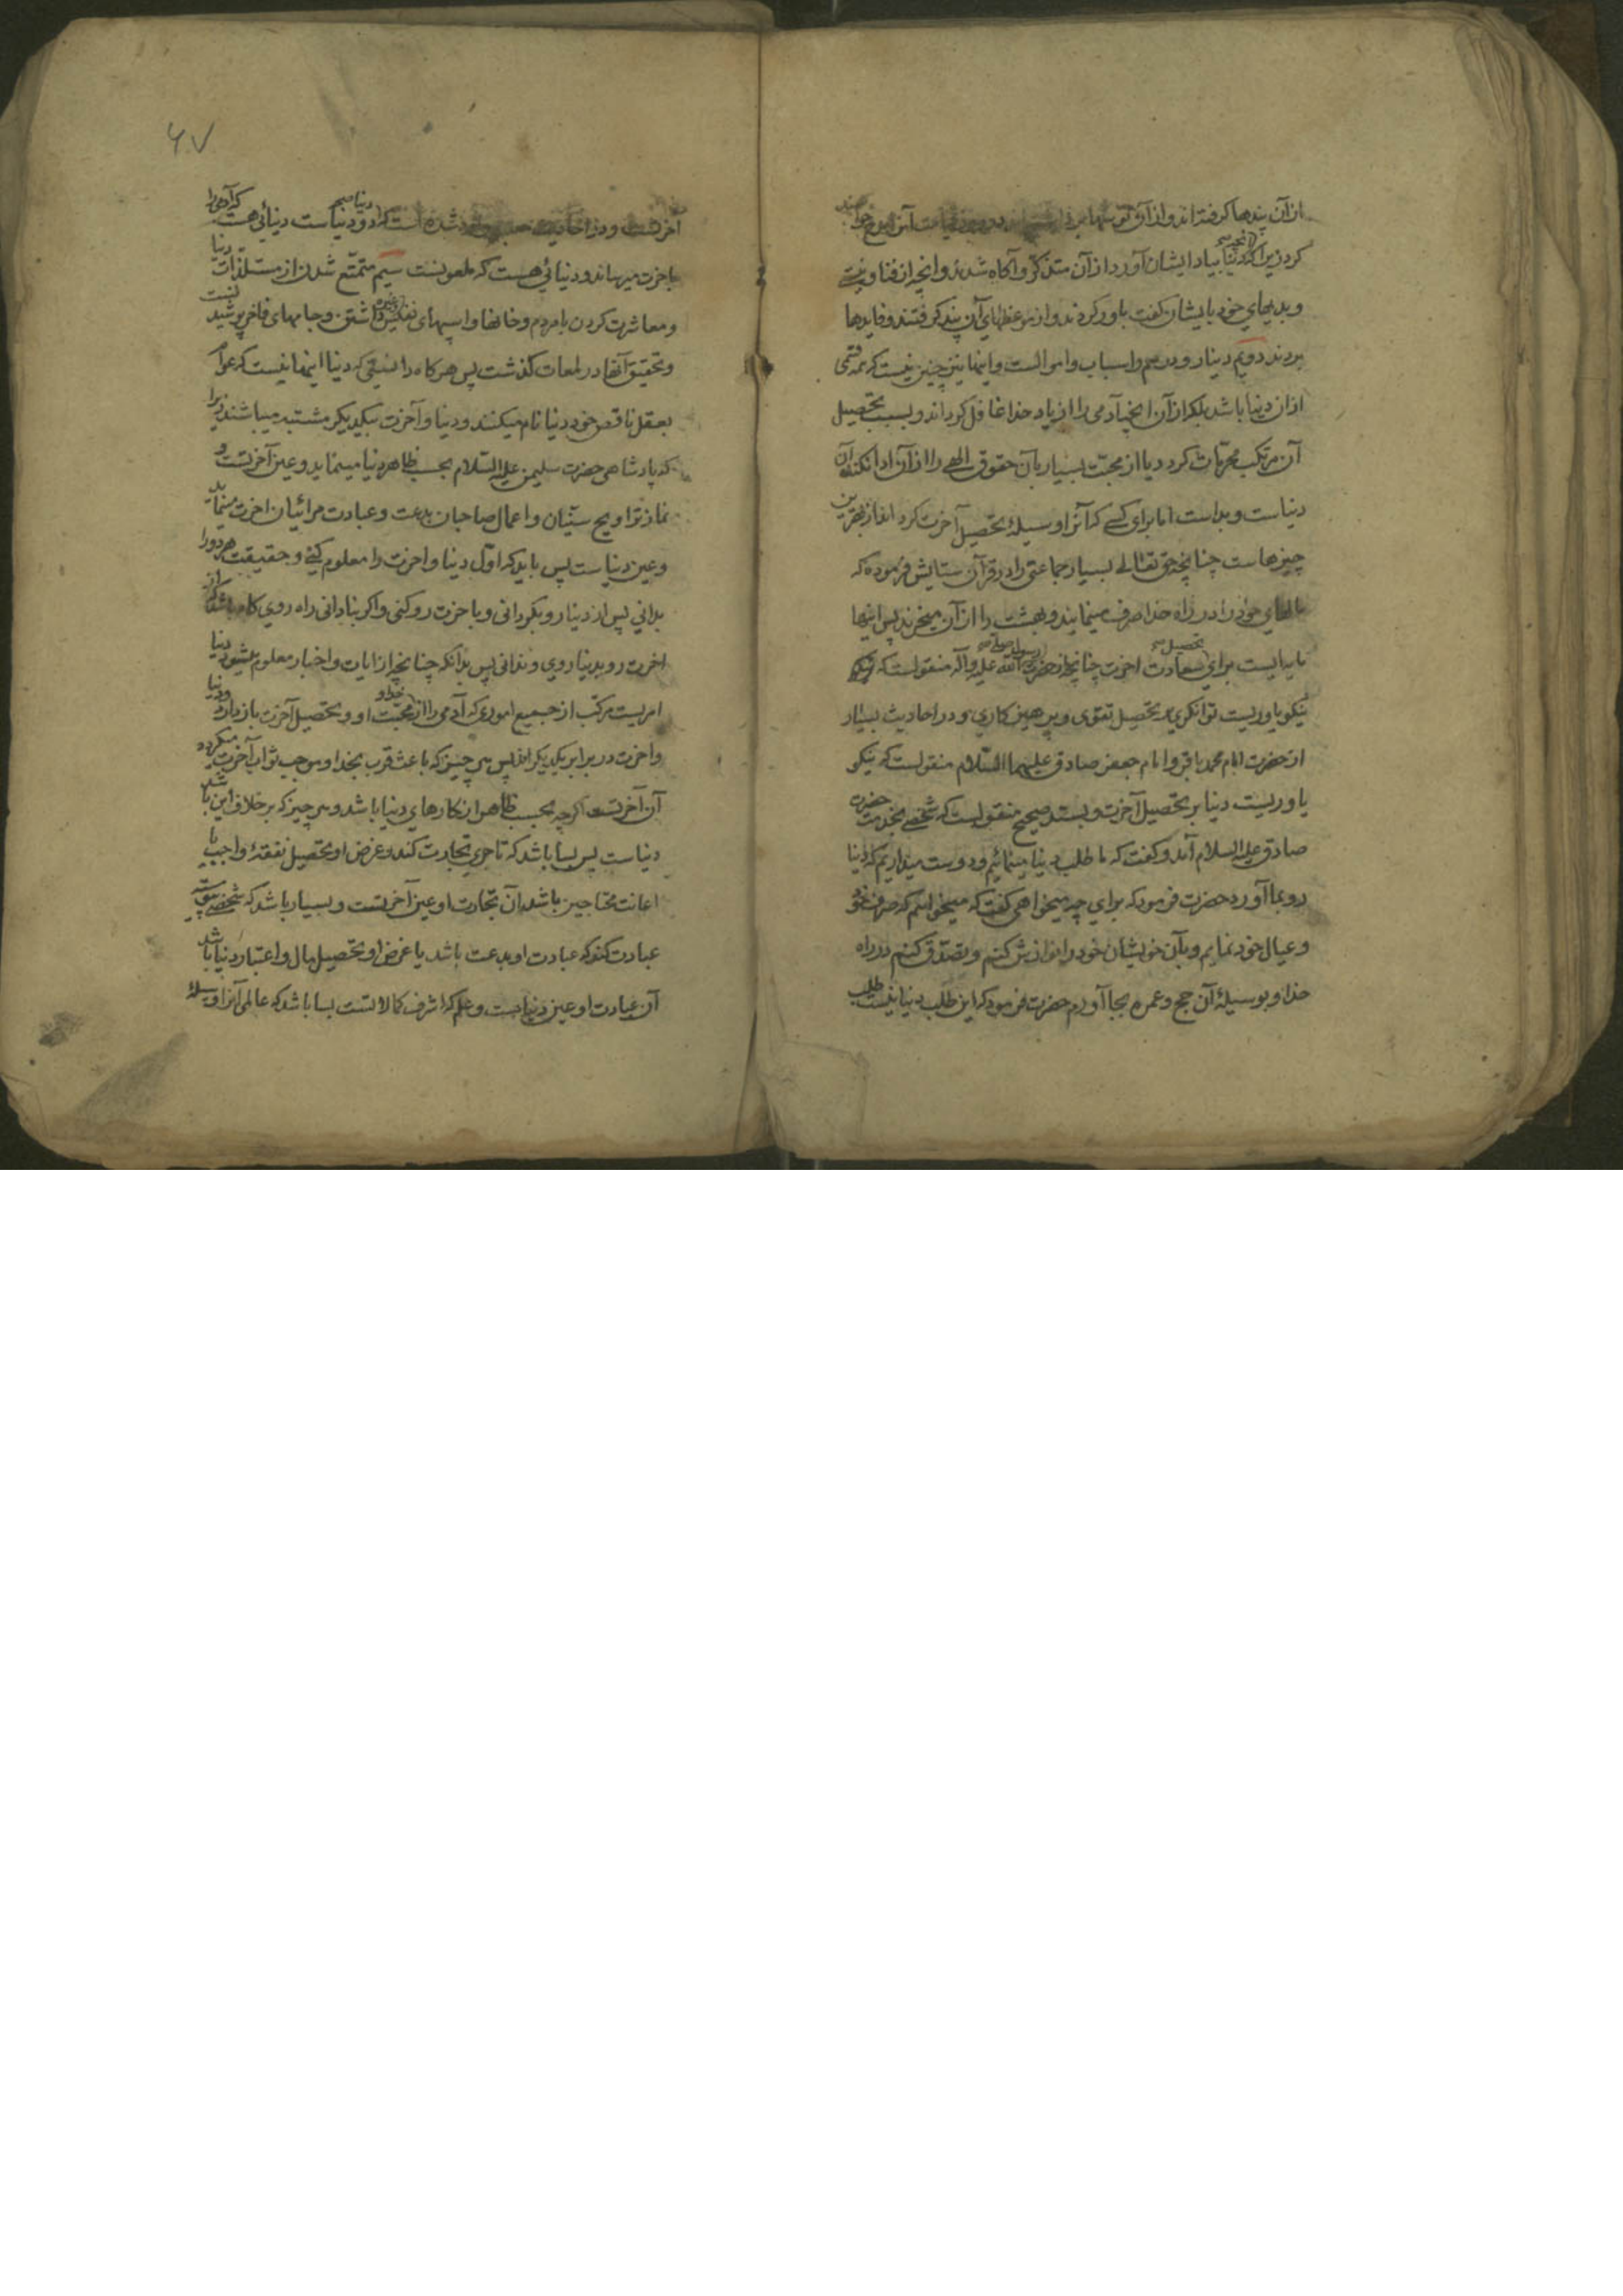 از آن پندها کرفته اند و از آن توشها برداشته اند و در روز قیامت آنرا مدح خواهند
کرد زیرا که آنچه دنیا بیاد ایشان آورد از آن متذکّر و آکاه شدند و آنچه از فنا و نیستی
و بدیهای خود بایشان کفت باور کردند و از موعظهای آن پند کرفتند و فایدها
بردند دویم دینار و درهم و اسباب و اموالست و اینها نیز چنین نیست که همه قسمی
از ان دنیا باشد بلکه از آن آنچه آدمی را از یاد خدا غافل کرداند و بسبب تحصیل
آن مرتکب محرّمات کردد یا از محبّت بسیار بآن حقوق الهی را از آن ادا نکند آن
دنیاست و بد است اما برای کسی که آنرا وسیلهٔ تحصیل آخرت کرداند از بهترین
چیزهاست چنانچه حق تعالی بسیار جماعتی را در قرآن ستایش فرموده که
مالهای خود را در راه خدا صرف مینمایند و بهشت را از آن میخرند پس اینها
برای تحصیل سعادت اخرت چنانچه از حضرت رسول صلی الله علیه وآله منقولست که نیکو
نیکو یاوریست توانکری بر تحصیل تقوی و پرهیزکاری و در احادیث بسیار
از حضرت امام محمد باقر و امام جعفر صادق علیهما السّلام منقولست که نیکو
یاوریست دنیا بر تحصیل آخرت و بسند صحیح منقولست که شخصی بخدمت حضرت
صادق علیه السلام آمد و کفت که ما طلب دنیا مینمائیم و دوست میداریم که دنیا
رو بما آورد حضرت فرمود که برای چه میخواهی کفت که میخواهم که صرف خود
و عیال خود نمایم و بآن خویشان خود را نوازش کنم و تصدّق کنم در راه
خدا و بوسیلهٔ آن حج و عمره بجا آورم حضرت فرمود که این طلب دنیا نیست طلب
۶۷
آخرتست و در احادیث وارد شده است که دنیا دو دنیاست دنیائی هست که آدمی را
باخرت میرساند و دنیائی هست که ملعونست سیم متمتّع شدن از مستلذات دنیا
و معاشرت کردن با مردم و خانها و اسبهای نفیس داشتن و جامهای فاخر پوشیدنست
و تحقیق آنها در لمعات کذشت پس هرکاه دانستی که دنیا اینها نیست که عوام
بعقل ناقص خود دنیا نام میکنند و دنیا و آخرت بیکدیکر مشتبه میباشند زیرا
که پادشاهی حضرت سلیمن علیه السّلام بحسب ظاهر دنیا مینماید و عین آخرتست و
نماز تراویح سنّیان و اعمال صاحبان بدعت و عبادت مرائیان اخرت مینماید
و عین دنیاست پس باید که اوّل دنیا و اخرت را معلوم کنی و حقیقت هر دو را
بدانی پس از دنیا رو بکردانی و باخرت رو کنی و اکر بنادانی راه روی کاه باشد که از
اخرت رو بدنیا روی و ندانی پس بدانکه چنانچه از ایات و اخبار معلوم میشود دنیا
امریست مرکّب از جمیع اموری که آدمی را از خدا و محبّت او و تحصیل آخرت بازدارد و دنیا
و اخرت در برابر یکدیکراند پس هر چیز که باعث قرب بخدا و موجب ثواب آخرت میکردد
آن آخرتست اکرچه بحسب ظاهر از کارهای دنیا باشد و هر چیز که برخلاف این باشد
دنیاست پس بسا باشد که تاجری تجارت کند و غرض او تحصیل نفقهٔ واجب یا
اعانت محتاجین باشد آن تجارت او عین آخرتست و بسیار باشد که شخصی
عبادت کند که عبادت او بدعت باشد یا غرض او تحصیل مال و اعتبار دنیا باشد
آن عبادت او عین دنیاست و علم که اشرف کمالاتست بسا باشد که عالمی آنرا وسیلهٔ